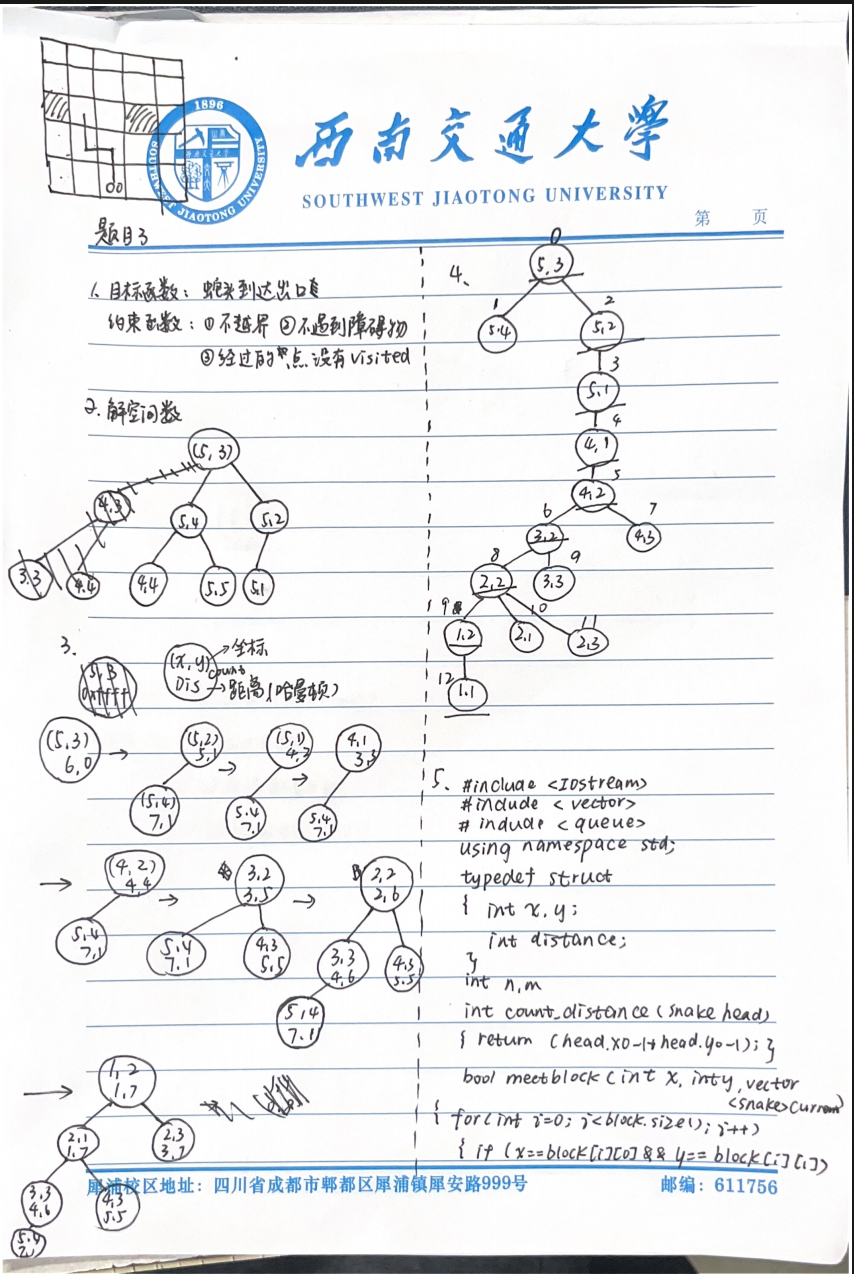 1896
SOUTHWEST JIAOTONG UNIVERSITY
西南交通大学
SOUTHWEST JIAOTONG UNIVERSITY
第 页
题目3
1、目标函数: 蛇头到达出口
约束函数: ①不越界 ②不遇到障碍物
③经过的点没有visited
2、解空间数
(5,3)
4,3
5,4
5,2
3,3
4,4
4,4
5,5
5,1
3、
(x,y) →坐标
count
Dis →距离(哈曼顿)
(5,3)
6,0
→
(5,2)
5,1
(5,4)
7,1
→
(5,1)
4,2
5,4
7,1
→
4,1
3,3
5,4
7,1
→
(4,2)
4,4
5,4
7,1
→
3,2
3,5
5,4
7,1
4,3
5,5
→
2,2
2,6
3,3
4,6
4,3
5,5
5,4
7,1
→
1,2
1,7
2,1
1,7
2,3
3,7
3,3
4,6
4,3
5,5
5,4
4、
0
5,3
1
5,4
2
5,2
3
5,1
4
4,1
5
4,2
6
3,2
7
4,3
8
2,2
9
3,3
9
1,2
10
2,1
11
2,3
12
1,1
5、 #include <IOstream>
#include <vector>
#include <queue>
using namespace std;
typedef struct
{ int x,y;
int distance;
}
int n,m
int count_distance (snake head)
{ return (head.x0-1+head.y0-1); }
bool meetblock (int x, int y, vector
<snake> current)
{ for(int i=0; i<block.size(); i++)
{ if (x==block[i][0] && y==block[i][1])
犀浦校区地址：四川省成都市郫都区犀浦镇犀安路999号 邮编：611756